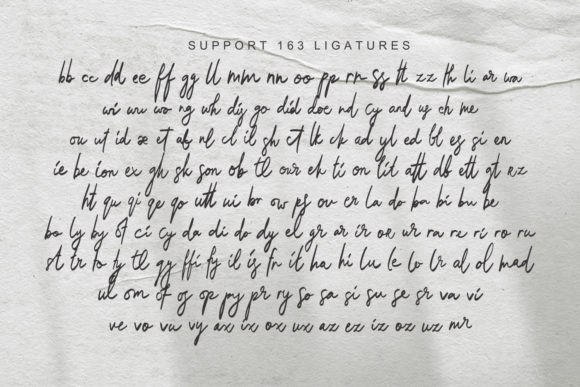 SUPPORT 163 LIGATURES
bb cc dd ee ff gg ll mm nn oo pp rr ss tt zz th li ar wa
wi wu wo ng wh dis go did doe nd cy and us ch me
ou ut id æ et as nl cl il sh ct lk ck ad yl ed bl es si en
ie be ion ex gh sk son ob tl our eh ti on lit att ds ett gt RZ
ht qu qi qe qo utt ui br ow ps ov er la do ba bi bu be
bo ly by of ci cy da di do dy el gr ar ir or ur ra re ri ro ru
st tr to ty tl gy ffi fy il is fn it ha hi lu le lo lr al ol mad
ul om of og op py pr ry so sa si su se sr va vi
ve vo vu vy ax ix ox ux az ez iz oz uz mr